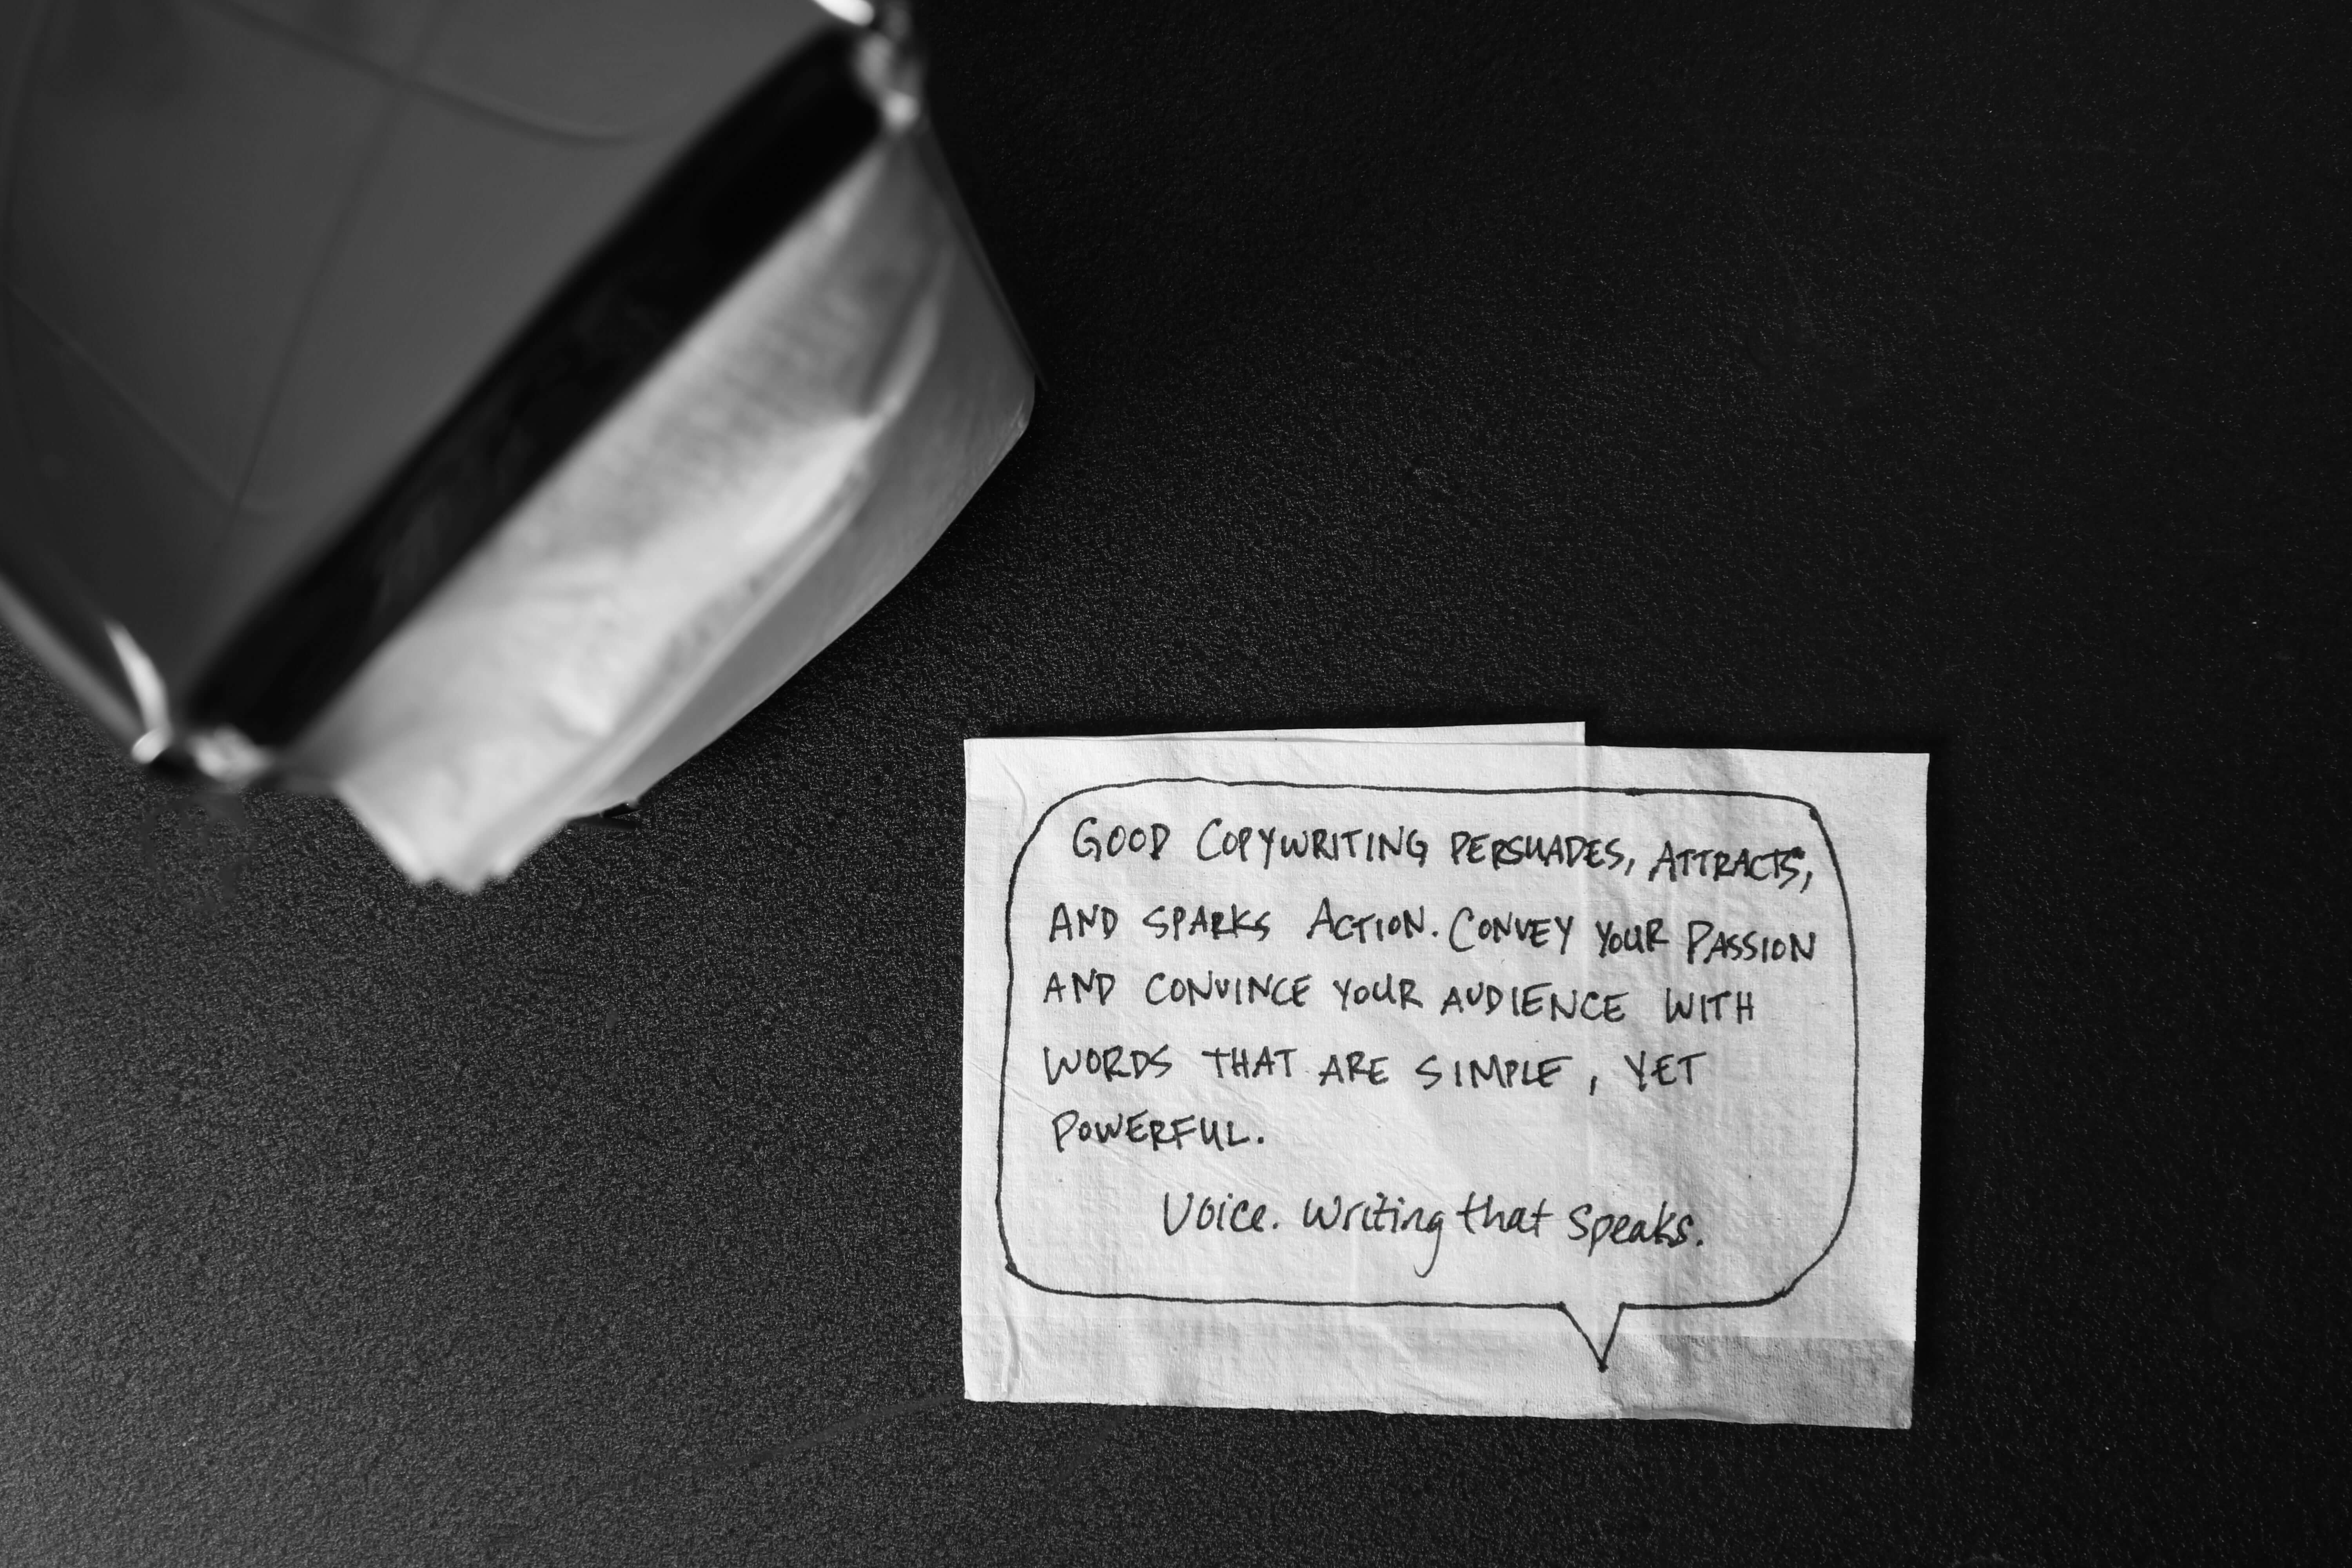 GOOD COPYWRITING PERSUADES, ATTRACTS,
AND SPARKS ACTION. CONVEY YOUR PASSION
AND CONVINCE YOUR AUDIENCE WITH
WORDS THAT ARE SIMPLE, YET
POWERFUL.
Voice. Writing that speaks.